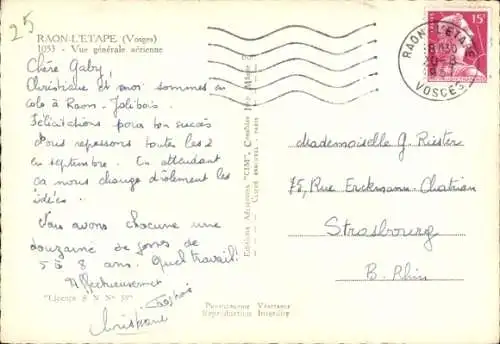 25
RAON-L'ETAPE (Vosges)
1053 - Vue générale aérienne
Chère Gaby,
Christiane et moi sommes en
colo à Raon - Joli bois.
Félicitations pour ton succès
Nous repassons toutes les 2
en septembre. En attendant
ça nous change drôlement les
idées.
Nous avons chacune une
douzaine de gosses de
5 à 8 ans. Quel travail!
Affectueusement
Christiane
"Licence S N N° 50"
Editions Aériennes "CIM", Combier Imp. Mâcon
PARIS
Reproduction Interdite
RAON-L'ETAPE
VOSGES
15
Mademoiselle G. Riester
75, Rue Erckmann-Chatrian
Strasbourg
B. Rhin